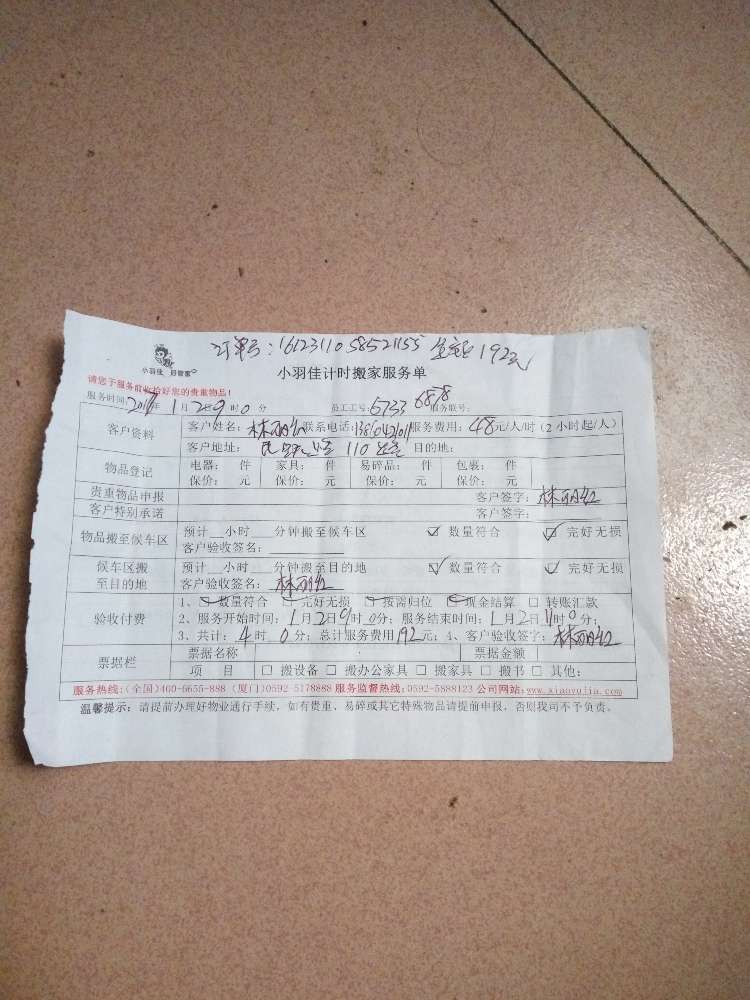 订单号：1612311058521155 192元
小羽佳 好管家
小羽佳计时搬家服务单
请您于服务前收拾好您的贵重物品！
服务时间：2017年1月2日9时0分 员工工号：5733 6878 服务联号：
客户资料 客户姓名：林丽红 联系电话： 服务费用：48元/人/时（2小时起/人）
客户地址： 110 目的地：
物品登记 电器： 件 家具： 件 易碎品： 件 包裹： 件
保价： 元 保价： 元 保价： 元 保价： 元
贵重物品申报 客户签字：林丽红
客户特别承诺 客户签字：
物品搬至候车区 预计__小时__分钟搬至候车区 ☑ 数量符合 ☑ 完好无损
客户验收签名：
候车区搬至目的地 预计__小时__分钟搬至目的地 ☑ 数量符合 ☑ 完好无损
客户验收签名：林丽红
验收付费 1、☑数量符合 ☑完好无损 ☑按需归位 ☑现金结算 □ 转账汇款
2、服务开始时间：1月2日9时0分；服务结束时间：1月2日11时0分；
3、共计：4时0分；总计服务费用192元；4、客户验收签字：林丽红
票据栏 票据名称 票据金额
项 目 □ 搬设备 □ 搬办公家具 □ 搬家具 □ 搬书 □ 其他：
服务热线：（全国）400-6655-888（厦门）0592-5178888 服务监督热线：0592-5888123 公司网站：www.xiaoyujia.com
温馨提示：请提前办理好物业通行手续，如有贵重、易碎或其它特殊物品请提前申报，否则我司不予负责。